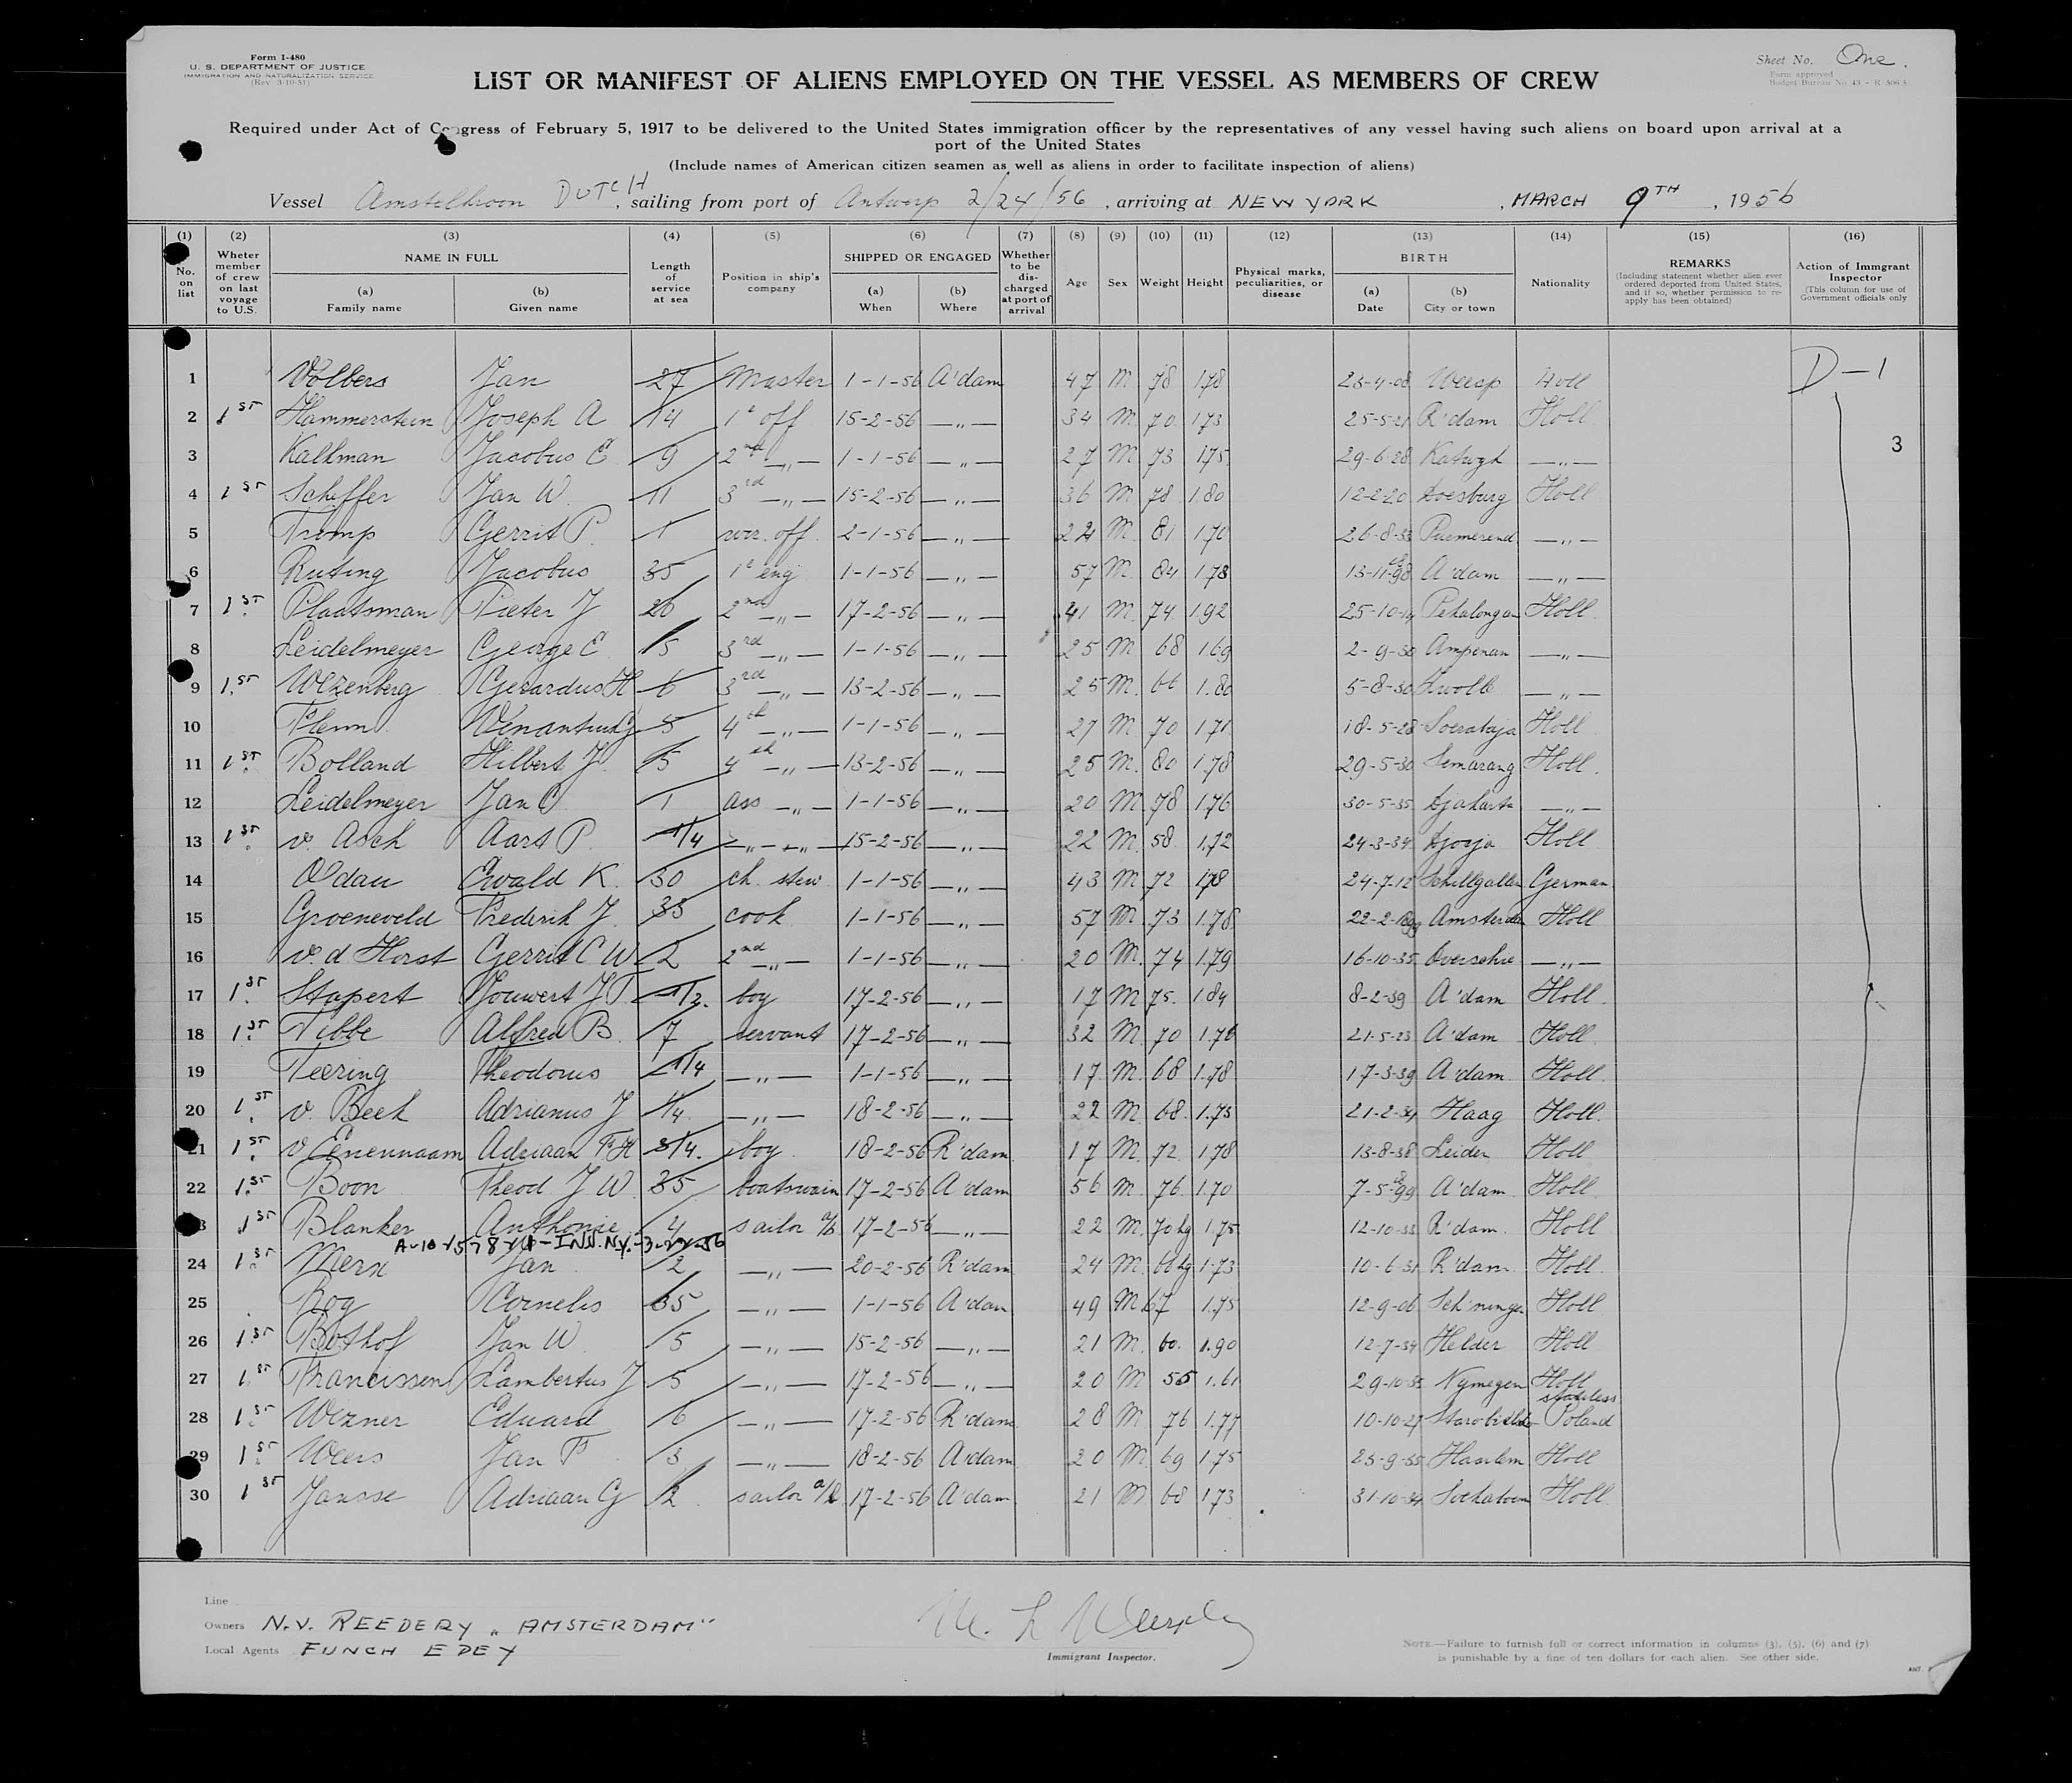 Form I-480
U. S. DEPARTMENT OF JUSTICE
IMMIGRATION AND NATURALIZATION SERVICE
(Rev. 3-10-51)
Sheet No. One.
Form approved
Budget Bureau No. 43 - R
LIST OR MANIFEST OF ALIENS EMPLOYED ON THE VESSEL AS MEMBERS OF CREW
Required under Act of Congress of February 5, 1917 to be delivered to the United States immigration officer by the representatives of any vessel having such aliens on board upon arrival at a
port of the United States
(Include names of American citizen seamen as well as aliens in order to facilitate inspection of aliens)
Vessel Amstelkroon DUTCH, sailing from port of Antwerp 2/24/56, arriving at NEW YORK, MARCH 9TH, 1956
(1) (2) (3) (4) (5) (6) (7) (8) (9) (10) (11) (12) (13) (14) (15) (16)
No. on list
Wheter member of crew on last voyage to U.S.
NAME IN FULL
(a) Family name
(b) Given name
Length of service at sea
Position in ship's company
SHIPPED OR ENGAGED
(a) When
(b) Where
Whether to be discharged at port of arrival
Age
Sex
Weight
Height
Physical marks, peculiarities, or disease
BIRTH
(a) Date
(b) City or town
Nationality
REMARKS
(Including statement whether alien ever ordered deported from United States, and if so, whether permission to re-apply has been obtained)
Action of Immgrant Inspector
(This column for use of Government officials only
D-1
3
1 Volbers Jan 27 Master 1-1-56 A'dam 47 M 78 178 23-4-08 Weesp Holl
2 1st Hammerstein Joseph A 14 1e off 15-2-56 —„— 34 M 70 173 25-5-21 R'dam Holl
3 Kalkman Jacobus C 9 2nd —„— 1-1-56 —„— 27 M 73 175 29-6-28 Katwyk —„—
4 1st Scheffer Jan W 11 3rd —„— 15-2-56 —„— 36 M 78 180 12-2-20 Doesburg Holl
5 Tromp Gerrit P. 1 wir. off 2-1-56 —„— 22 M 81 170 26-8-33 Purmerend —„—
6 Ruting Jacobus 35 1e eng 1-1-56 —„— 57 M 84 178 13-11-98 A'dam —„—
7 1st Plaatsman Pieter J 26 2nd —„— 17-2-56 —„— 41 M 74 192 25-10-14 Pekalongan Holl
8 Leidelmeyer George E 5 3rd —„— 1-1-56 —„— 25 M 68 169 2-9-30 Ampenan —„—
9 1st Wezenberg Gerardus H 6 3rd —„— 13-2-56 —„— 25 M. 66 1.80 5-8-30 Zwolle —„—
10 Flemm 5 4th —„— 1-1-56 —„— 27 M. 70 171 18-5-28 Holl
11 1st Bolland Hilbert J 5 4th —„— 13-2-56 —„— 25 M. 80 178 29-5-30 Semarang Holl.
12 Leidelmeyer Jan C 1 ass —„— 1-1-56 —„— 20 M 78 176 30-5-35 Djakarta —„—
13 1st v. Asch Aart P. 1/4 —„—„— 15-2-56 —„— 22 M. 58 172 24-3-34 Djogja Holl
14 Oldau Ewald K. 30 ch. stew 1-1-56 —„— 43 M 72 178 24-7-12 German
15 Groeneveld Frederik J. 33 cook 1-1-56 —„— 57 M 73 178 22-2-1899 Amsterdam Holl
16 v. d Horst Gerrit C W 2 2nd —„— 1-1-56 —„— 20 M. 74 179 16-10-35 Overschie —„—
17 1st Stapert Douwert J T. 1/2 boy 17-2-56 —„— 17 M 75. 184 8-2-39 A'dam Holl.
18 1st Tibbe Alfred B. 7 servant 17-2-56 —„— 32 M 70 1.76 21-5-23 A'dam Holl
19 Teering Theodorus 1/4 —„— 1-1-56 —„— 17 M. 68 1.78 17-3-39 A'dam Holl.
20 1st v. Beek Adrianus J 1/4 —„— 18-2-56 —„— 22 M. 68. 1.75 21-2-34 Haag Holl.
21 1st v Eenennaam Adriaan F H 3/4. boy 18-2-56 R'dam 17 M. 72 178 13-8-38 Leiden Holl
22 1st Boon Theod J W 35 boatswain 17-2-56 A'dam 56 M. 76. 1.70 7-5-99 A'dam Holl
23 1st Blanker Anthonie 4 sailor a/b 17-2-56 —„— 22 M. 70 kg 1.75 12-10-33 R'dam Holl
24 1st Merx Jan 2 —„— 20-2-56 R'dam 24 M. 66 kg 1.73 10-6-31 R'dam Holl.
25 Rog Cornelis 35 —„— 1-1-56 A'dam 49 M 67 1.75 12-9-06 Holl
26 1st Bothof Jan W 5 —„— 15-2-56 —„— 21 M. 60. 1.90 12-7-34 Helder Holl
27 1st Francissen Lambertus J 5 —„— 17-2-56 —„— 20 M 55 1.61 29-10-35 Nymegen Holl
28 1st Wezner Eduard 6 —„— 17-2-56 R'dam 28 M 76 1.77 10-10-27 stateless Poland
29 1st Weers Jan F 3 —„— 18-2-56 A'dam 20 M 69 1.75 23-9-35 Haarlem Holl
30 1st Jansse Adriaan G 2 sailor 17-2-56 A'dam 21 M 68 173 31-10-34 Holl.
Line
Owners N.V. REEDERY „AMSTERDAM"
Local Agents FUNCH EDEY
Immigrant Inspector.
NOTE.—Failure to furnish full or correct information in columns (3), (5), (6) and (7)
is punishable by a fine of ten dollars for each alien. See other side.
ANT.